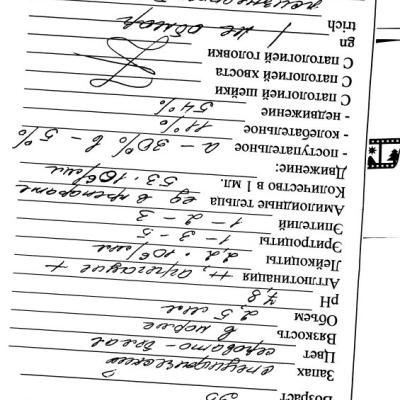 Возраст
Запах специфический
Цвет серовато-белая
Вязкость в норме
Объем 2,5 мл
pH 7,8
Агглютинация ++, агрегация +
Лейкоциты 2,2·10⁶/мл
Эритроциты 1-3-5
Эпителий 1-2-3
Амилоидные тельца ед в препарате
Количество в 1 мл. 53·10⁶/мл
Движение:
- поступательное a – 30% b – 5%
- колебательное 11%
- недвижение 54%
С патологией шейки
С патологией хвоста
С патологией головки
gn
trich